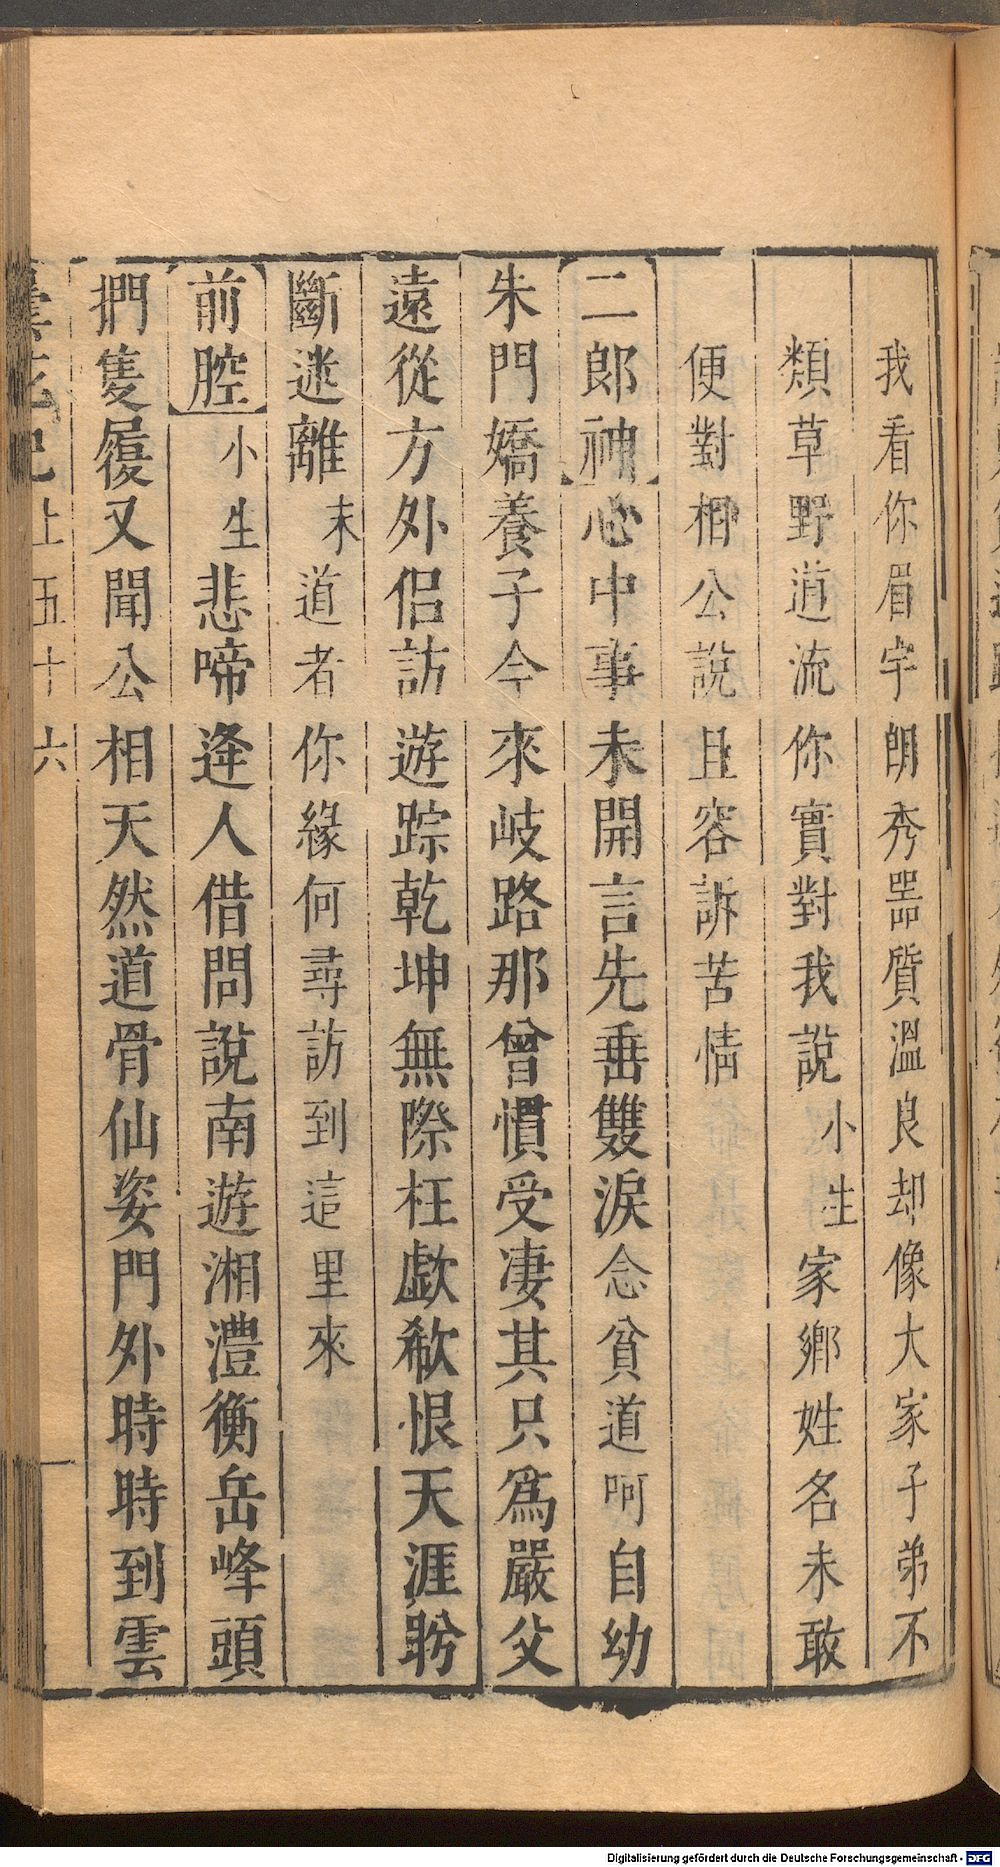 我看你眉宇朗秀器質溫良却像大家子弟不
類草野道流你實對我說小生家鄉姓名未敢
便對相公說且容訴苦情
二郎神心中事未開言先垂雙淚念貧道呵自幼
朱門嬌養子今來岐路那曾慣受凄其只爲嚴父
遠從方外侣訪遊踪乾坤無際枉歔欷恨天涯盻
斷迷離末道者你緣何尋訪到這里來
前腔小生悲啼逢人借問說南遊湘澧衡岳峰頭
捫隻履又聞公相天然道骨仙姿門外時時到雲
曇花記上五十六
Digitalisierung gefördert durch die Deutsche Forschungsgemeinschaft - DFG